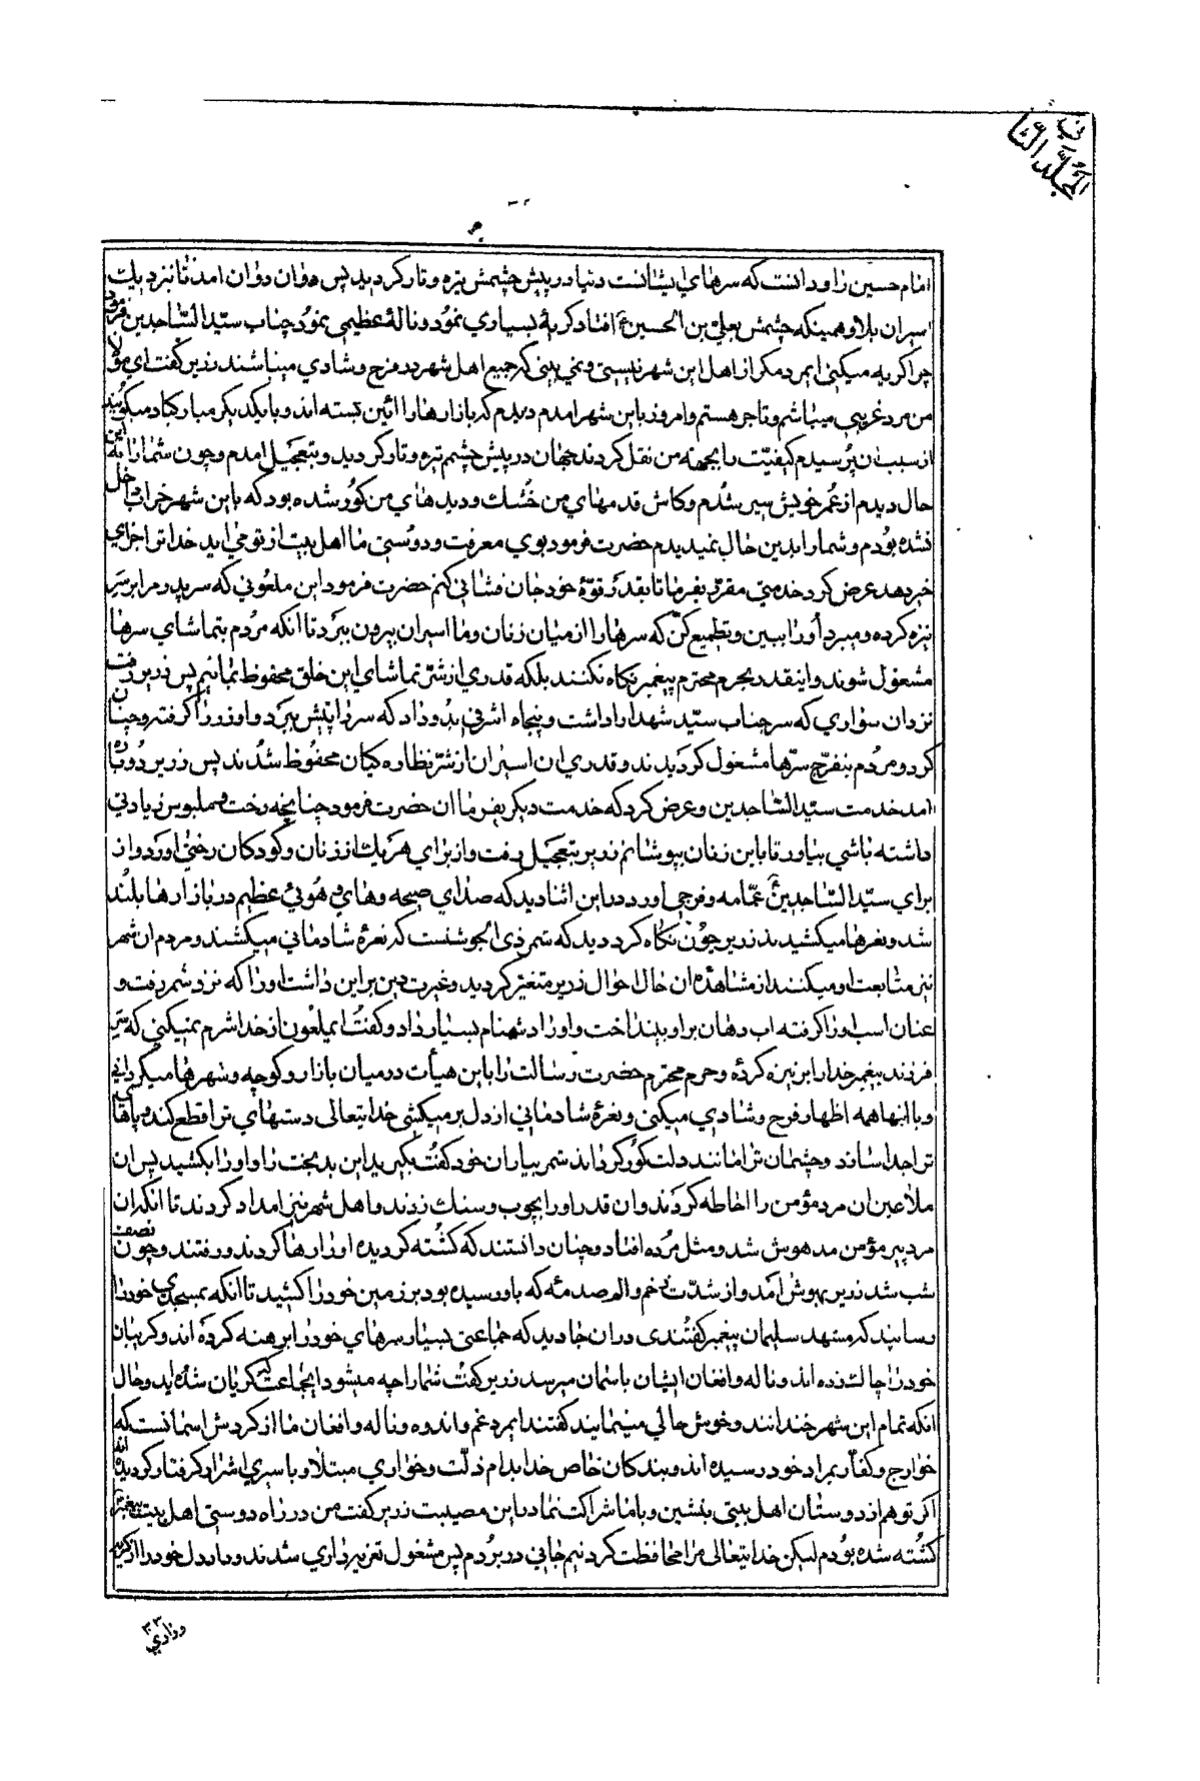 المجلّد الثاني
امام حسین را و دانست که سرهای ایشانست دنیا در پیش چشمش تیره و تار کردید پس دوان دوان امد تا نزدیك
اسیران بلا و همینکه چشمش بعلیّ بن الحسین ع افتاد کریهٔ بسیاری نمود و نالهٔ عظیمی نمود جناب سیّد السّاجدین فرمود
چرا کریه میکنی ایمرد مکر از اهل این شهر نیستی و نمی بینی که جمیع اهل شهر در فرح و شادی میباشند زریر کفت ای مولا
من مرد غریبی میباشم و تاجر هستم و امروز باین شهر امدم دیدم که بازارها را ائین بسته اند و با یکدیکر مبارکباد میکویند
از سبب ان پرسیدم کیفیّت را بجهة من نقل کردند جهان در پیش چشمم تیره و تار کردید و بتعجیل امدم و چون شما را باین
حال دیدم از عمر خویش سیر شدم و کاش قدمهای من خشك و دیدهای من کور شده بود که باین شهر خراب داخل
نشده بودم و شما را بدین حال نمیدیدم حضرت فرمود بوی معرفت و دوستی ما اهل بیت از تو می اید خدا ترا جزای
خیر دهد عرض کرد خدمتی مقرّر بفرما تا بقدر قوّهٔ خود جان فشانی کنم حضرت فرمود این ملعونی که سر پدر مرا بر سر
نیزه کرده و میبرد او را ببین و تطمیع کن که سرها را از میان زنان و ما اسیران بیرون ببرد تا انکه مردم بتماشای سرها
مشغول شوند و اینقدر بحرم محترم پیغمبر نکاه نکنند بلکه قدری از شرّ تماشای این خلق محفوظ بمانیم پس زریر رفت
نزد ان سواری که سر جناب سیّد شهدا را داشت و پنجاه اشرفی بدو داد که سر را پیش ببرد و او زر را کرفته و چنان
کرد و مردم بتفرّج سرها مشغول کردیدند و قدری ان اسیران از شرّ نظاره کیان محفوظ شدند پس زریر دوباره
امد خدمت سیّد السّاجدین و عرض کرد که خدمت دیکر بفرما ان حضرت فرمود چنانچه رخت و ملبوس زیادتی
داشته باشی بیاور تا باین زنان بپوشانم زریر بتعجیل برفت و از برای هر یك از زنان و کودکان رختی اورد و از
برای سیّد السّاجدین ع عمّامه و فرجی اورد در این اثنا دید که صدای صیحه و های و هوئی عظیم در بازارها بلند
شد و نعرها میکشیدند زریر چون نکاه کرد دید که شمر ذی الجوشنست که نعرهٔ شادمانی میکشند و مردم ان شهر
نیز متابعت او میکنند از مشاهدهٔ ان حال احوال زریر متغیّر کردید و غیرت دین بر این داشت او را که نزد شمر رفت و
عنان اسب او را کرفته اب دهان بر او بینداخت و او را دشنام بسیار داد و کفت ایملعون از خدا شرم نمیکنی که سر
فرزند پیغمبر خدا را بر نیزه کردهٔ و حرم محترم حضرت رسالت را باین هیأت در میان بازار و کوچه و شهرها میکردانی
و با اینهاهمه اظهار فرح و شادی میکنی و نعرهٔ شادمانی از دل بر میکشی خدایتعالی دستهای ترا قطع کند و پاهای
ترا جدا سازد و چشمان ترا مانند دلت کور کرداند شمر بیاران خود کفت بکیرید این بدبخت را و او را بکشید پس ان
ملاعین ان مرد مؤمن را احاطه کردند و ان قدر او را بچوب و سنك زدند و اهل شهر نیز امداد کردند تا انکه ان
مرد پیر مؤمن مدهوش شد و مثل مرده افتاد و چنان دانستند که کشته کردیده او را رها کردند و رفتند و چون نصف
شب شد زریر بهوش امد و از شدّت زخم و الم صدمهٔ که باو رسیده بود بر زمین خود را کشید تا انکه بمسجدی خود را
رسانید که مشهد سلیمان پیغمبر کفتندی در ان جا دید که جماعتی بسیار سرهای خود را برهنه کرده اند و کریبان
خود را چاك زده اند و ناله و افغان ایشان باسمان میرسد زریر کفت شما را چه میشود ایجماعت که کریان شده اید و حال
انکه تمام این شهر خندانند و خوش حالی مینمایند کفتند ایمرد غم و اندوه و ناله و افغان ما از کردش اسمانست که
خوارج و کفّار بمراد خود رسیده اند و بندکان خاص خدا بدام ذلّت و خواری مبتلا و باسیری اشرار کرفتار کردیده اند
اکر تو هم از دوستان اهل بیتی بنشین و با ما شراکت نما در این مصیبت زریر کفت من در راه دوستی اهل بیت پیغمبر
کشته شده بودم لیکن خدایتعالی مرا محافظت کرد نیم جانی در بردم پس مشغول تعزیه داری شدند و درد دل خود را از کریه
و زاری